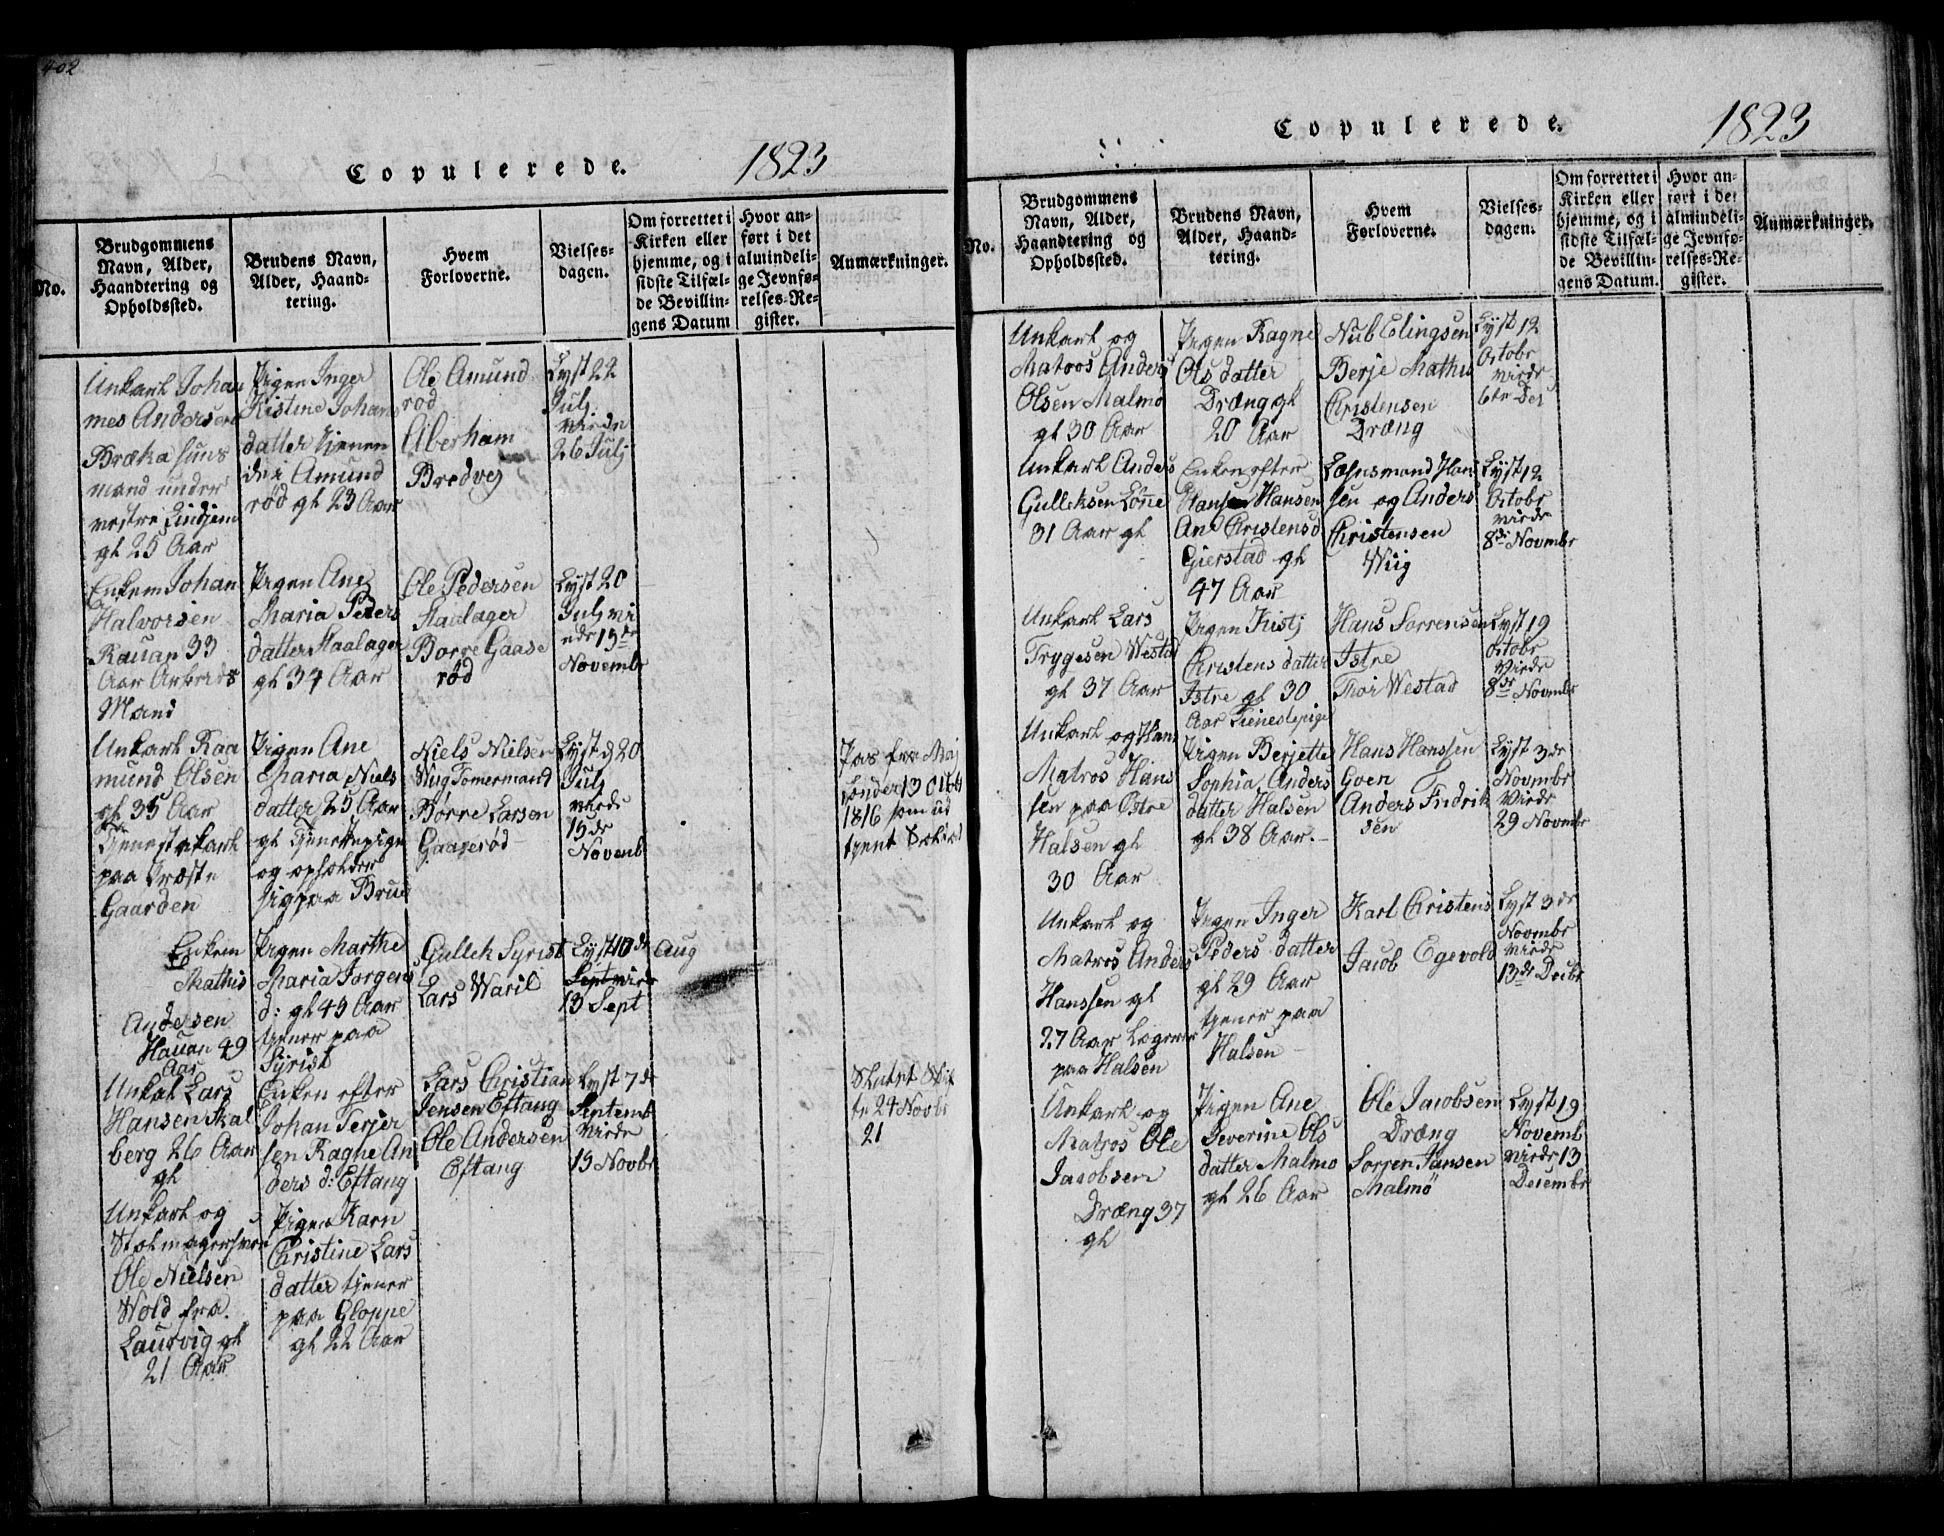 402
Copulerede.
1823
No.
Brudgommens
Navn, Alder,
Haandtering og
Opholdssted.
Brudens Navn,
Alder, Haand-
tering.
Hvem
Forloverne.
Vielses-
dagen.
Om forrettet i
Kirken eller
hjemme, og i
sidste Tilfæl-
de Bevillin-
gens Datum
Hvor an-
ført i det
almindeli-
ge Jevnfø-
relses-Re-
gister.
Anmærkninger.
Unkarl Johan
mes Andersen
Bræka huus
mand under
vestre Lindjem
gl 25 Aar
Pigen Inger
Kistine Johans
datter tienen
de i Amund
rød gl 23 Aar
Ole Amund
rod
Aberham
Bredvej
Lyst 22
Julj
virde
26 Julj
Enkem Johan
Halvorsen
Rauan 33
Aar Arbeids
Mand
Pigen Ane
Maria Peders
datter Haalager
gl 34 Aar
Ole Pedersen
Haalager
Borre Gaase
rød
Lyst 20
Julj vi
rde 15de
Novembr
Unkarl Raa
mund Olsen
gl 35 Aar
Tjenestekarl
paa Præste
Gaarden
Pigen Ane
Maria Niels
datter 25 Aar
gl Tjenestepige
og opholder
sig paa Brud
Niels Nielsen
Wiig Tømermand
Børre Larsen
Gaaserød
Lyst d 20
Julj
virde
15de
Novemb
Pas fra Maj
sonder 13 Octob
1816 som ud
tjent Soldat
Enkem
Mathis
Andersen
Hauan 49
Aar
Pigen Marthe
Maria Jorgens
d: gl 43 Aar
tjener paa
Syrist
Gullek Syrist
Lars Waril
Lyst 10de Aug
Sept virde
13 Sept
Unkal Lars
Hansen Skal
berg 26 Aar
gl
Enken efter
Johan Terjer
sen Ragne An
ders d: Eftang
Lars Christian
Jensen Eftang
Ole Andersen
Eftang
Lyst 7de
Septemb
virde
15 Novbr
Skutet Skif
te 24 Novbr
21
Unkarl og
Stolmagersven
Ole Nielsen
Wold fra
Laurvig gl
21 Aar
Pigen Karn
Christine Lars
datter tjener
paa Gloppe
gl 22 Aar
Copulerede.
1823
No.
Brudgommens
Navn, Alder,
Haandtering og
Opholdssted.
Brudens Navn,
Alder, Haand-
tering.
Hvem
Forloverne.
Vielses-
dagen.
Om forrettet i
Kirken eller
hjemme, og i
sidste Tilfæl-
de Bevillin-
gens Datum.
Hvor an-
ført i det
almindeli-
ge Jevnfø-
relses-Re-
gister.
Anmærkninger.
Unkarl og
Matros Anders
Olsen Malmø
gl 30 Aar
Pigen Ragne
Ols datter
Dræng gl
20 Aar
Nub Elingsen
Berje Mathis
Christensen
Dræng
Lyst 12
Octobr
virde
6te Des
Unkarl Anders
Gulleksen Lønne
31 Aar gl
Enken efter
Hans Hansen
Ane Christensd
Gierstad gl
47 Aar
Lehnsmand Han
sen og Anders
Christensen
Wiig
Lyst 12
Octobr
virde
8de Novembr
Unkarl Lars
Trygesen Westad
gl 37 Aar
Pigen Kistj
Christens datter
Istre gl 30
Aar Tienestepige
Hans Sorrensen
Istre
Thor Westad
Lyst 19
Octobr
virde
8de Novembr
Unkarl og
Matros Hans
sen paa Østre
Halsen gl
30 Aar
Pigen Berjette
Sophia Anders
datter Halsen
gl 38 Aar.
Hans Hanssen
Goen
Anders Fredrik
sen
Lyst 3de
Novembr
Virde
29 Novembr
Unkarl og
Matros Anders
Hanssen gl
27 Aar Logerer
paa Halsen
Pigen Inger
Peders datter
gl 29 Aar
tjener paa
Halsen
Karl Christens
Jacob Egevold
Lyst 3de
Novembr
virde
13de Decbr
Unkarl og
Matros Ole
Jacobsen
Dræng 37
gl
Pigen Ane
Severine Ols
datter Malmo
gl 26 Aar
Ole Jacobsen
Dræng
Sorren Jansen
Malmö
Lyst 19
Novemb
virde 13
Decembr